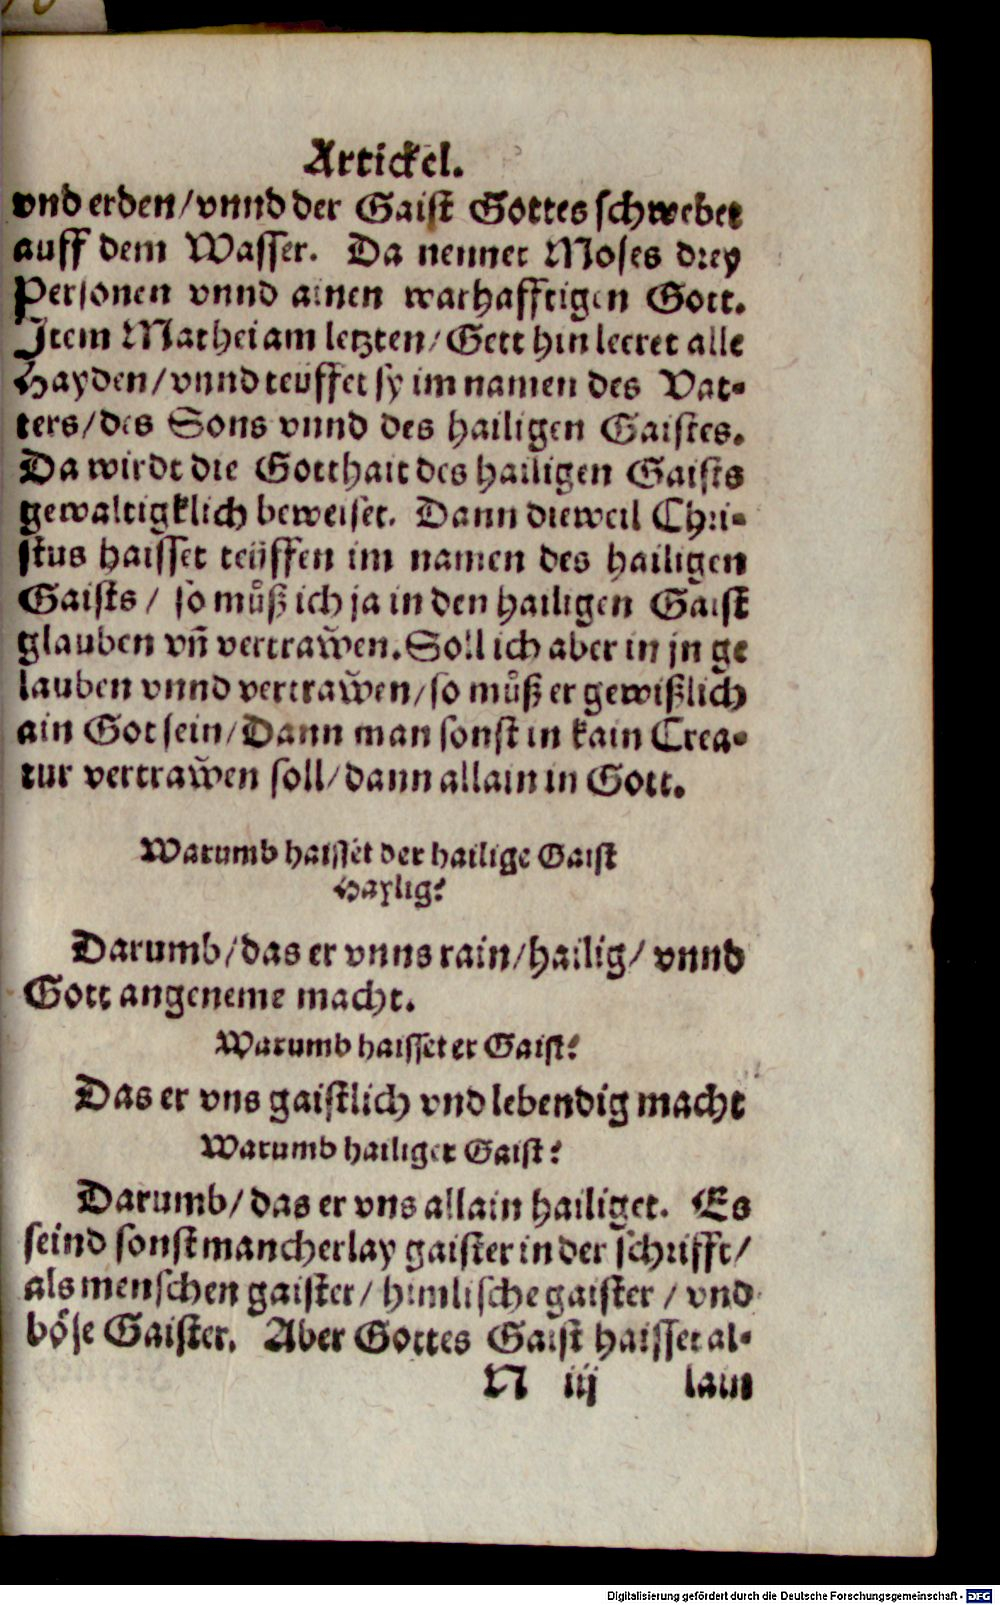 Artickel.
vnd erden/vnnd der Gaist Gottes schwebet
auff dem Wasser. Da nennet Moses drey
Personen vnnd ainen warhafftigen Gott.
Item Mathei am letzten/Gett hin leeret alle
Hayden/vnnd teüffet sy im namen des Vat-
ters/des Sons vnnd des hailigen Gaistes.
Da wirdt die Gotthait des hailigen Gaists
gewaltigklich beweiset. Dann dieweil Chri-
stus haisset teüffen im namen des hailigen
Gaists/ so můß ich ja in den hailigen Gaist
glauben vñ vertrawen. Soll ich aber in jn ge
lauben vnnd vertrawen/so můß er gewißlich
ain Got sein/Dann man sonst in kain Crea-
tur vertrawen soll/dann allain in Gott.
Warumb haisset der hailige Gaist
Haylig?
Darumb/das er vnns rain/hailig/ vnnd
Gott angeneme macht.
Warumb haisset er Gaist?
Das er vns gaistlich vnd lebendig macht
Warumb hailiger Gaist?
Darumb/das er vns allain hailiget. Es
seind sonst mancherlay gaister in der schrifft/
als menschen gaister/himlische gaister/vnd
böse Gaister. Aber Gottes Gaist haisset al-
N iij lain
Digitalisierung gefördert durch die Deutsche Forschungsgemeinschaft - DFG